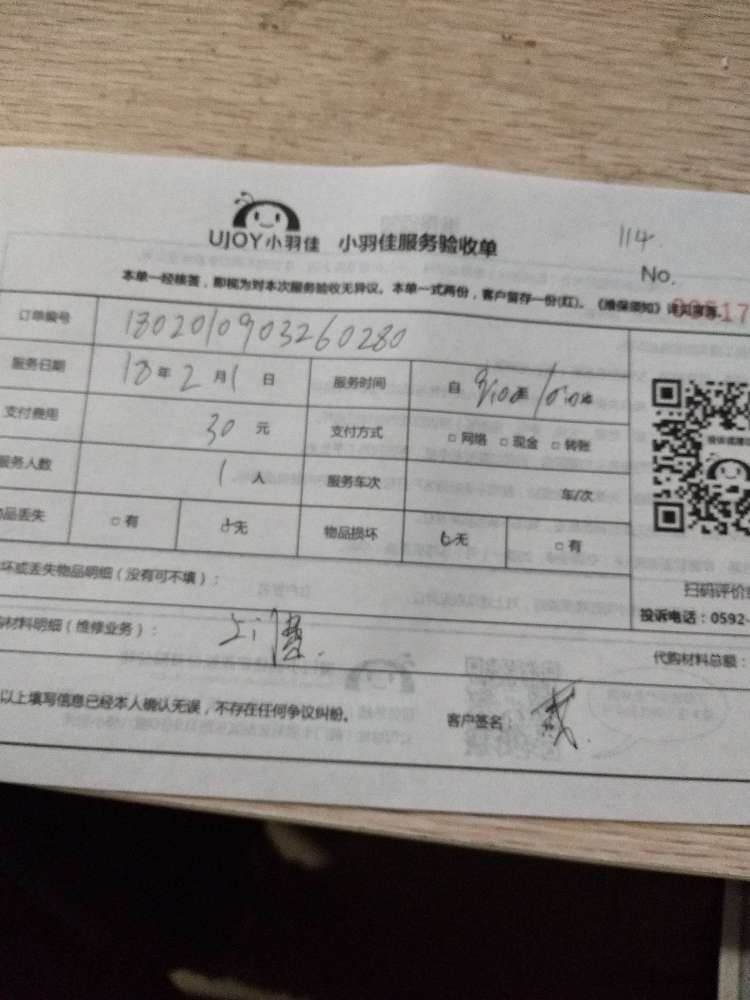 UJOY小羽佳 小羽佳服务验收单
114
No.
本单一经核签，即视为对本次服务验收无异议。本单一式两份，客户留存一份(红)。《维保须知》详见背面。
订单编号 1802010903260280
服务日期 18年2月1日 服务时间 自9:00至10:00
支付费用 30元 支付方式 □网络 □现金 □转账
服务人数 1人 服务车次 车/次
品丢失 □有 无 物品损坏 无 □有
坏或丢失物品明细（没有可不填）：
扫码评价
投诉电话：0592-
材料明细（维修业务）：
代购材料总额：
以上填写信息已经本人确认无误，不存在任何争议纠纷。
客户签名：